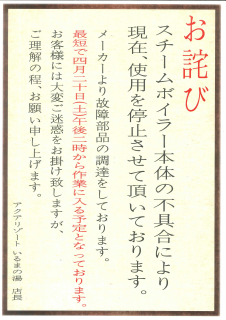 お詫び
スチームボイラー本体の不具合により
現在、使用を停止させて頂いております。
メーカーより故障部品の調達をしております。
最短で四月二十日(土)午後二時から作業に入る予定となっております。
お客様には大変ご迷惑をお掛け致しますが、
ご理解の程、お願い申し上げます。
アクアリゾート いるまの湯 店長